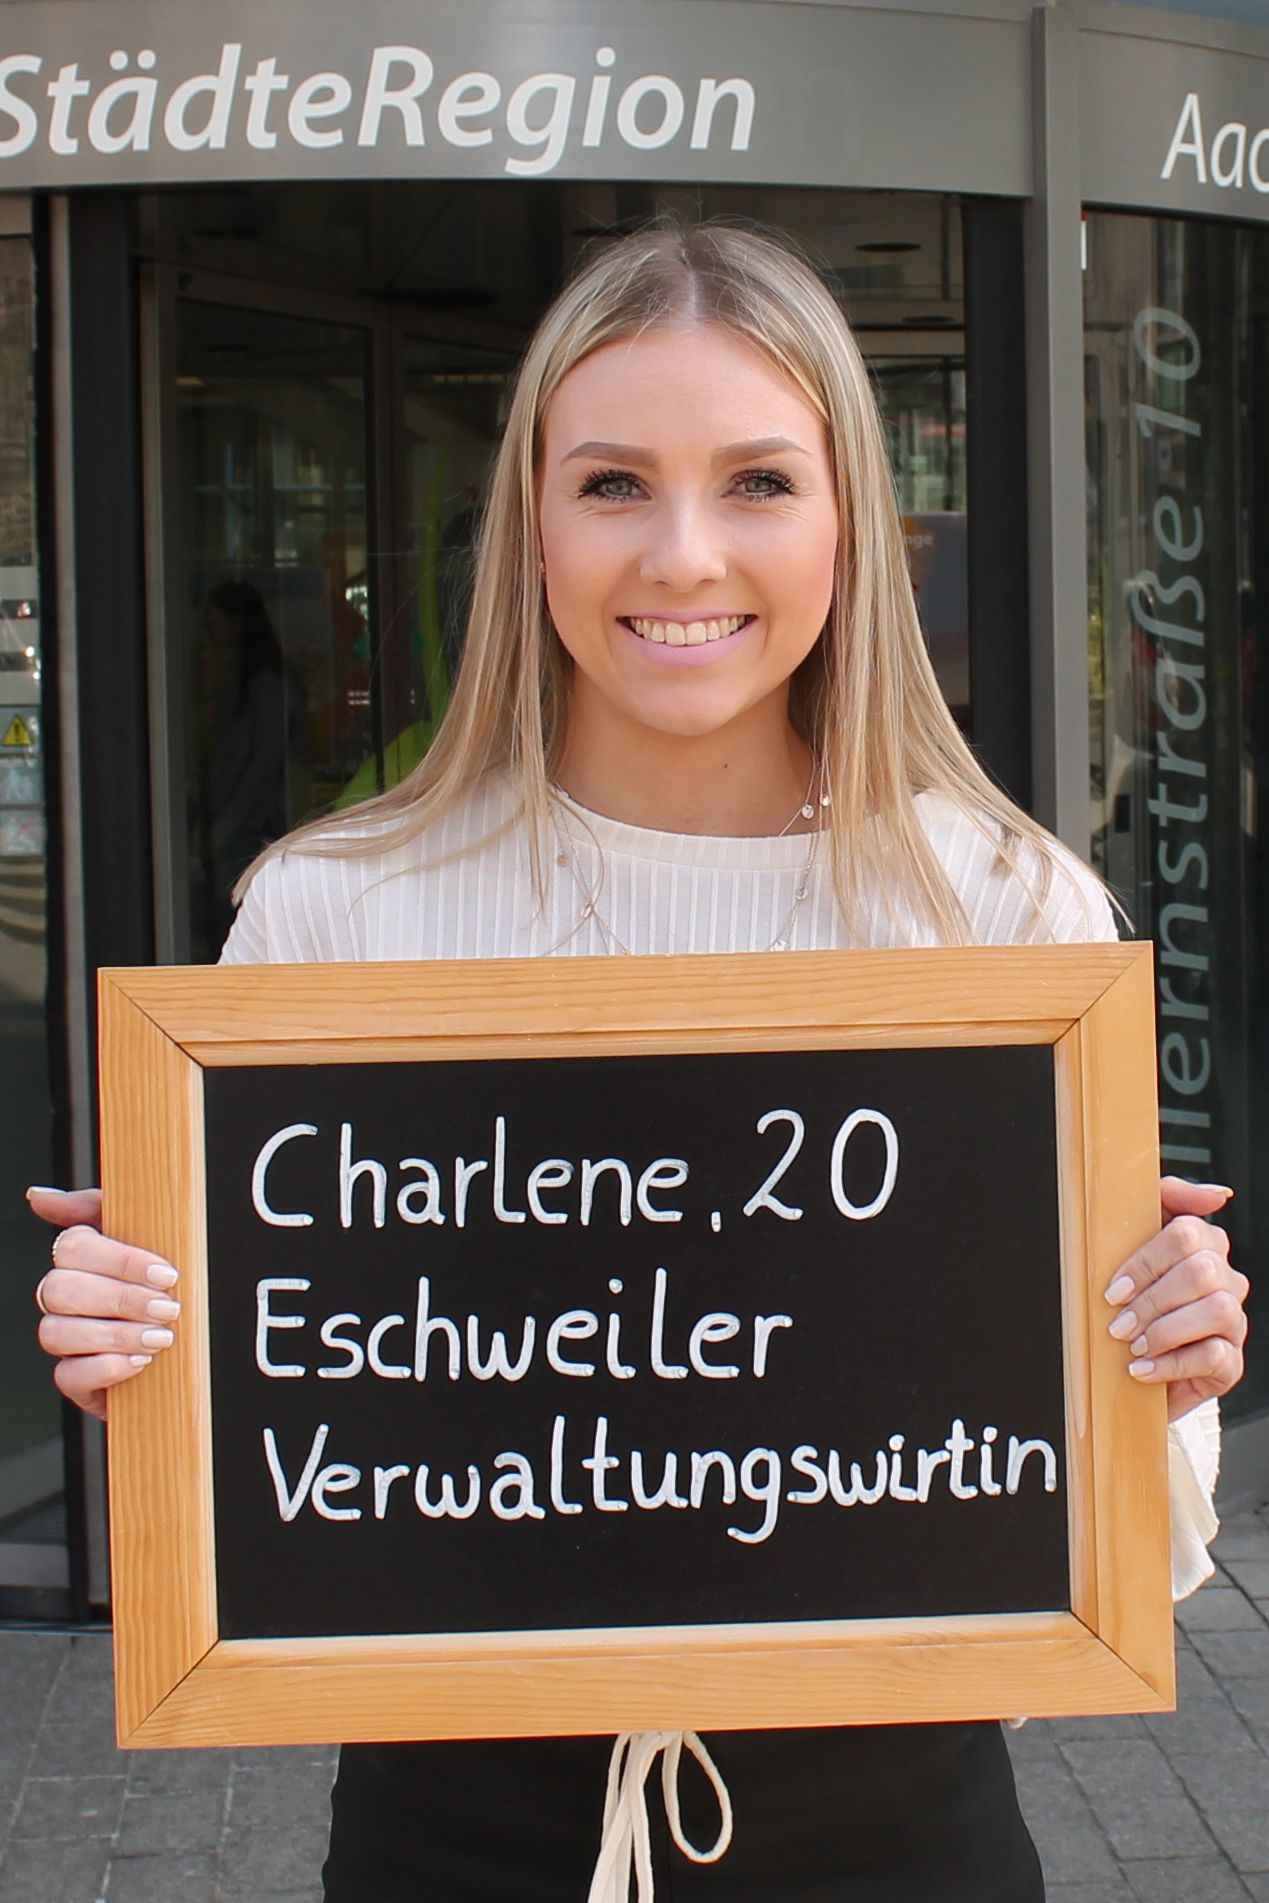 StädteRegion
Aac
Charlene, 20
Eschweiler
Verwaltungswirtin
llernstraße 10
nge